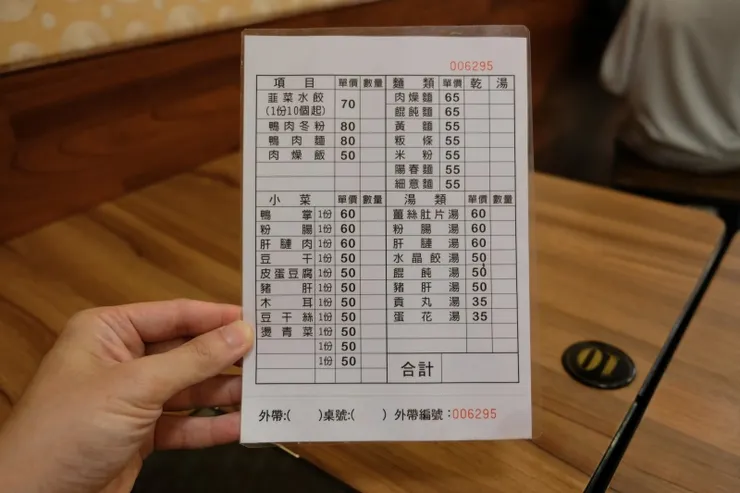 006295
項目 單價 數量 麵類 單價 乾 湯
韮菜水餃 (1份10個起) 70 肉燥麵 65
餛飩麵 65
鴨肉冬粉 80 黃麵 55
鴨肉麵 80 粄條 55
肉燥飯 50 米粉 55
陽春麵 55
細意麵 55
小菜 單價 數量 湯類 單價 數量
鴨掌 1份 60 薑絲肚片湯 60
粉腸 1份 60 粉腸湯 60
肝腱肉 1份 60 肝腱湯 60
豆干 1份 50 水晶餃湯 50
皮蛋豆腐 1份 50 餛飩湯 50
豬肝 1份 50 豬肝湯 50
木耳 1份 50 貢丸湯 35
豆干絲 1份 50 蛋花湯 35
燙青菜 1份 50
1份 50
1份 50
合計
外帶:( )桌號:( ) 外帶編號:006295
01